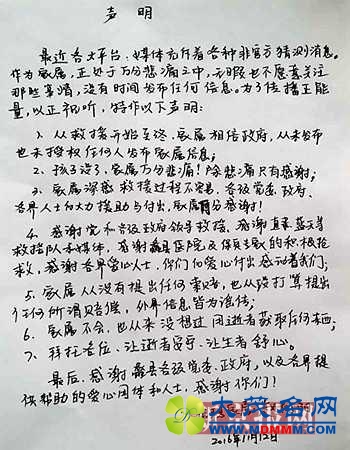 声 明
最近各大平台、媒体充斥着各种非官方猜测消息。
作为家属,正处于万分悲痛之中,无暇也不愿意关注
那些事情,没有时间发布任何信息。为了传播正能
量,以正视听,特作以下声明:
1、从救援开始至终,家属相信政府,从未发布
也未授权任何人发布家属信息;
2、孩子没了,家属万分悲痛!除悲痛只有感谢;
3、家属深感救援过程不容易,各级党委、政府、
各界人士的大力援助与付出,家属万分感谢!
4、感谢党和各级政府领导救援,感谢蓝天等
救援队和媒体,感谢蠡县医院及保定的积极抢
救,感谢各界爱心人士,你们的爱心付出感动着我们;
5、家属从没有提出任何要求,也从没打算提出
任何所谓赔偿,外界信息皆为谣传;
6、家属不会,也从来没想过因逝者获取任何东西;
7、拜托各位,让逝者安宁,让生者舒心。
最后,感谢蠡县各级党委、政府,以及各界提
供帮助的爱心团体和人士,感谢你们!
2016年11月12日
大英名网
www.MDMMM.com